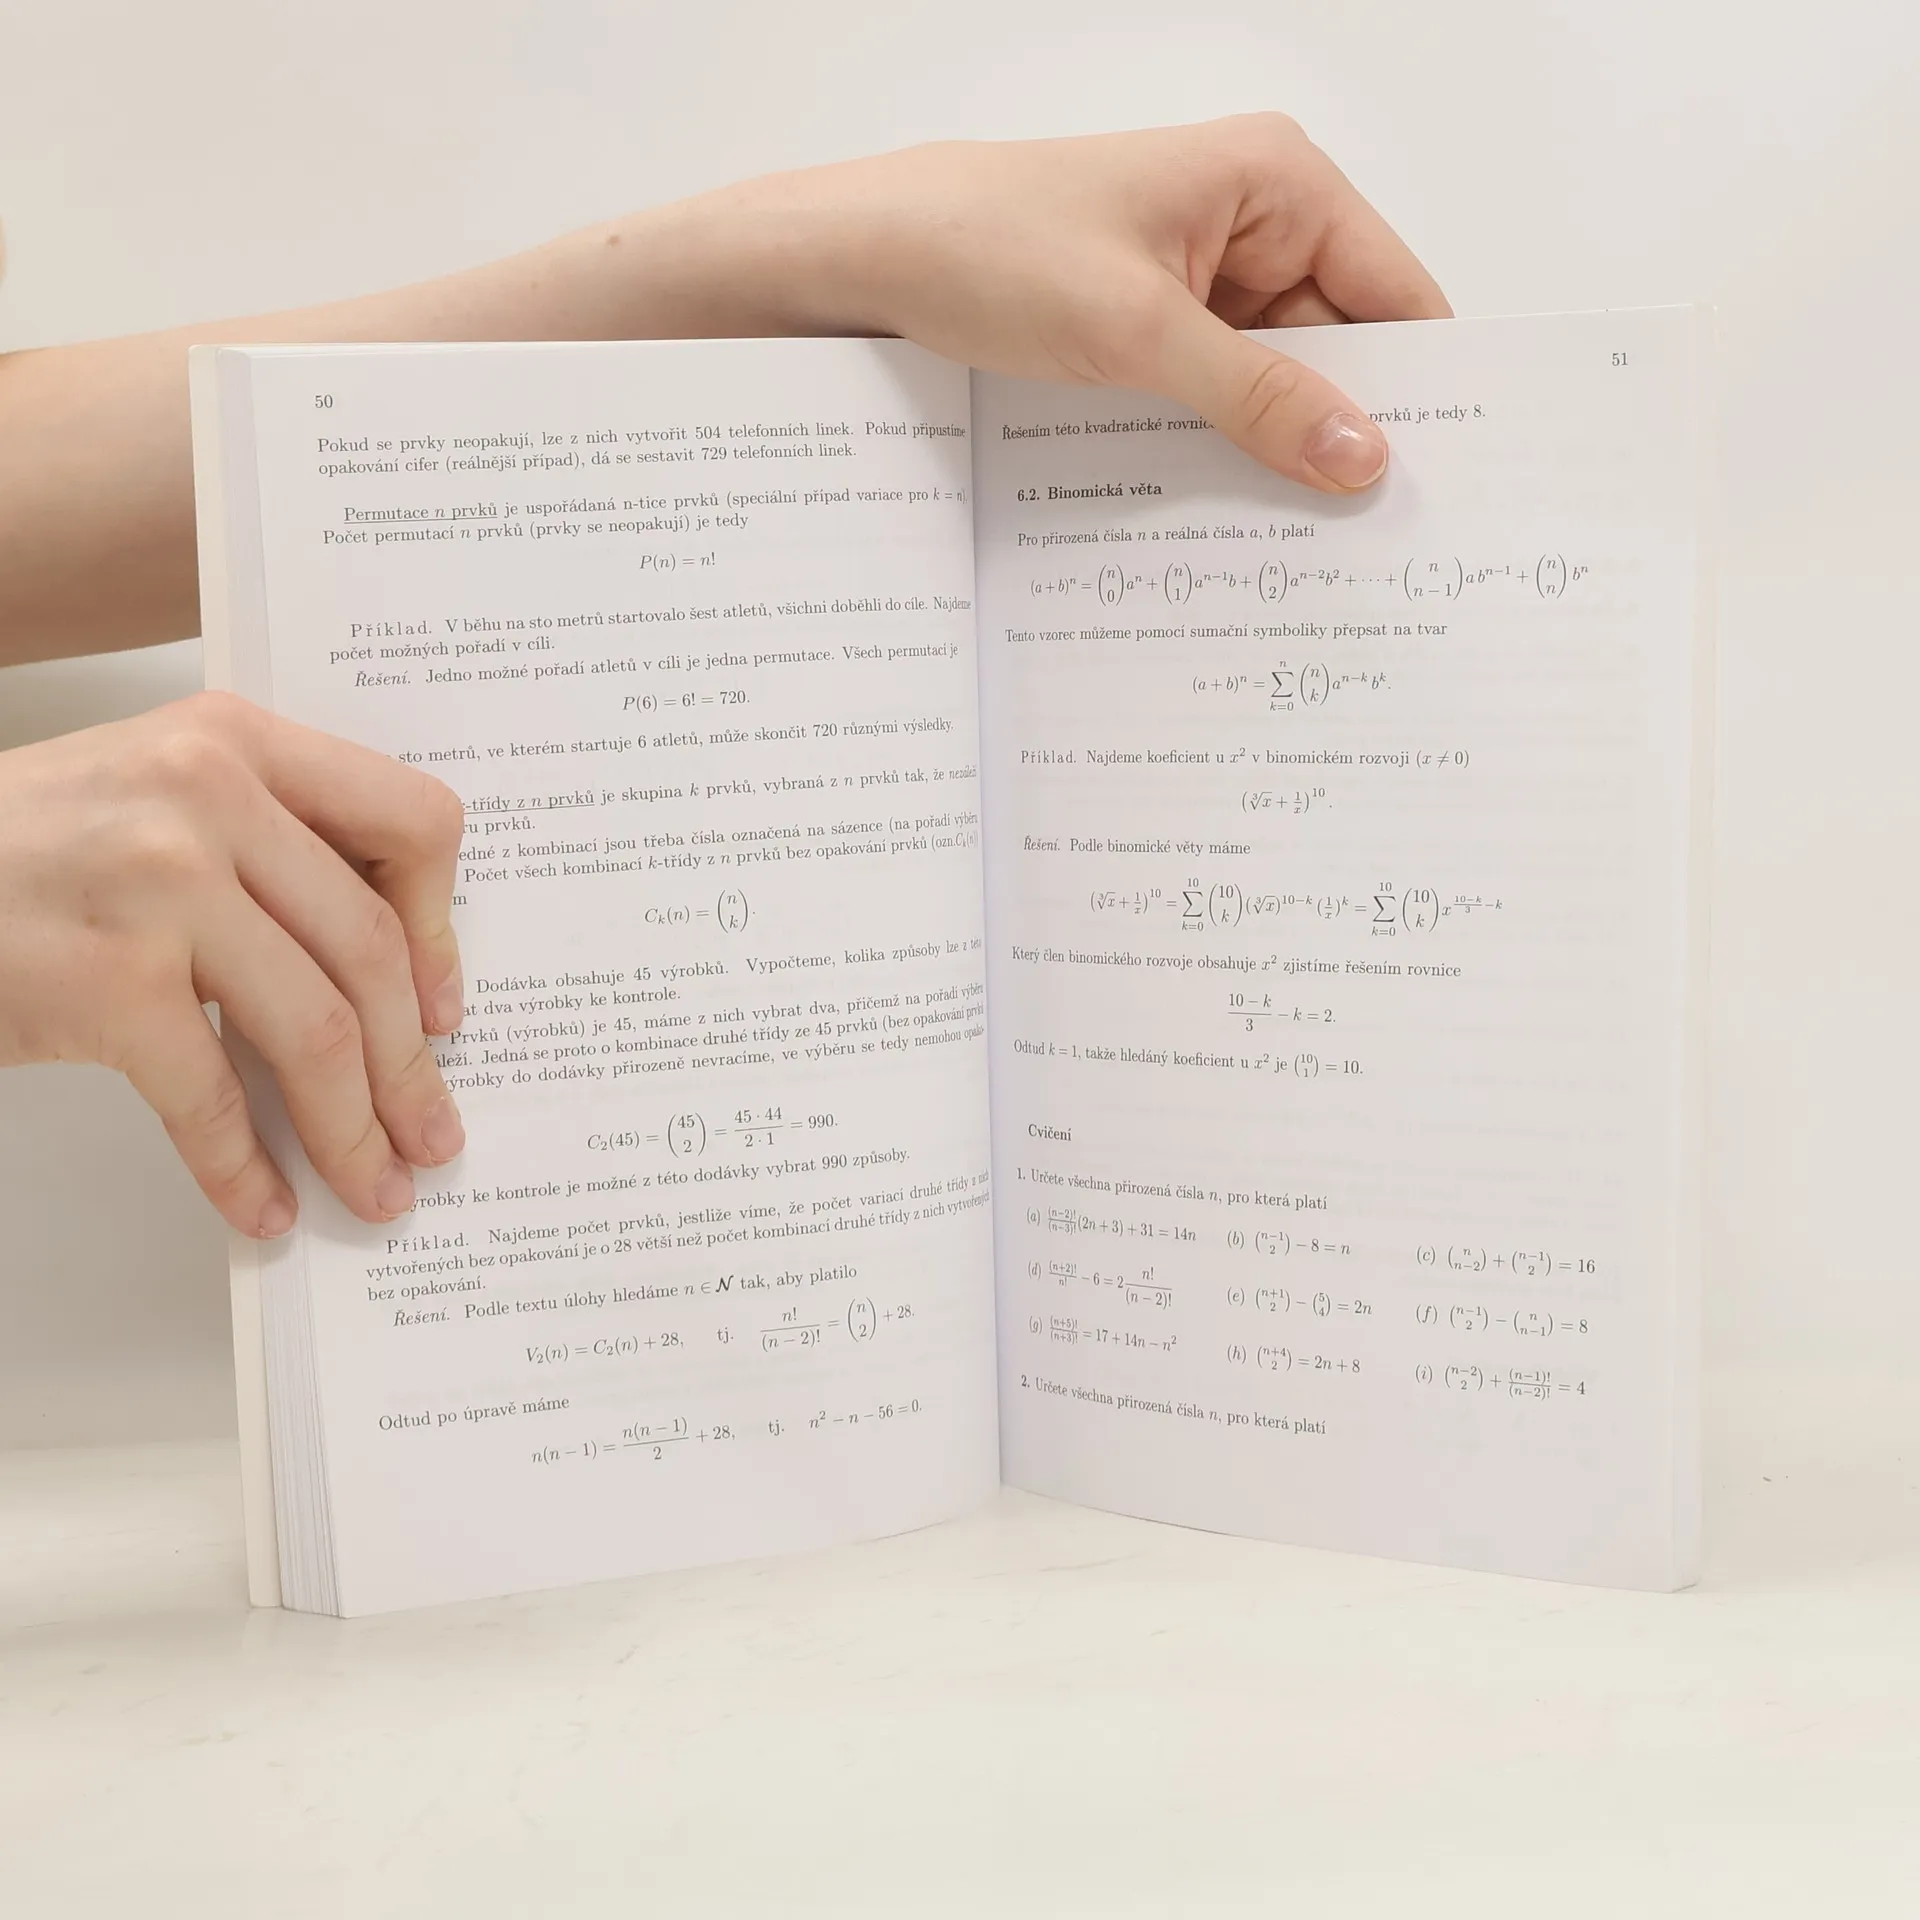 50
Pokud se prvky neopakují, lze z nich vytvořit 504 telefonních linek. Pokud připustíme
opakování cifer (reálnější případ), dá se sestavit 729 telefonních linek.
Permutace n prvků je uspořádaná n-tice prvků (speciální případ variace pro k = n).
Počet permutací n prvků (prvky se neopakují) je tedy
P(n) = n!
Příklad. V běhu na sto metrů startovalo šest atletů, všichni doběhli do cíle. Najdeme
počet možných pořadí v cíli.
Řešení. Jedno možné pořadí atletů v cíli je jedna permutace. Všech permutací je
P(6) = 6! = 720.
sto metrů, ve kterém startuje 6 atletů, může skončit 720 různými výsledky.
-třídy z n prvků je skupina k prvků, vybraná z n prvků tak, že nezáleží
ru prvků.
edné z kombinací jsou třeba čísla označená na sázence (na pořadí výběru
Počet všech kombinací k-třídy z n prvků bez opakování prvků (ozn.C_k(n))
m
C_k(n) = \binom{n}{k}.
Dodávka obsahuje 45 výrobků. Vypočteme, kolika způsoby lze z této
at dva výrobky ke kontrole.
Prvků (výrobků) je 45, máme z nich vybrat dva, přičemž na pořadí výběru
áleží. Jedná se proto o kombinace druhé třídy ze 45 prvků (bez opakování prvků
ýrobky do dodávky přirozeně nevracíme, ve výběru se tedy nemohou opako-
C_2(45) = \binom{45}{2} = \frac{45 · 44}{2 · 1} = 990.
ýrobky ke kontrole je možné z této dodávky vybrat 990 způsoby.
Příklad. Najdeme počet prvků, jestliže víme, že počet variací druhé třídy z nich
vytvořených bez opakování je o 28 větší než počet kombinací druhé třídy z nich vytvořených
bez opakování.
Řešení. Podle textu úlohy hledáme n ∈ N tak, aby platilo
V_2(n) = C_2(n) + 28, tj. \frac{n!}{(n − 2)!} = \binom{n}{2} + 28.
Odtud po úpravě máme
n(n − 1) = \frac{n(n − 1)}{2} + 28, tj. n^2 − n − 56 = 0.
51
Řešením této kvadratické rovnic prvků je tedy 8.
6.2. Binomická věta
Pro přirozená čísla n a reálná čísla a, b platí
(a + b)^n = \binom{n}{0} a^n + \binom{n}{1} a^{n−1} b + \binom{n}{2} a^{n−2} b^2 + ··· + \binom{n}{n − 1} a b^{n−1} + \binom{n}{n} b^n
Tento vzorec můžeme pomocí sumační symboliky přepsat na tvar
(a + b)^n = \sum_{k=0}^{n} \binom{n}{k} a^{n−k} b^k.
Příklad. Najdeme koeficient u x^2 v binomickém rozvoji (x ≠ 0)
(\sqrt[3]{x} + \frac{1}{x})^{10}.
Řešení. Podle binomické věty máme
(\sqrt[3]{x} + \frac{1}{x})^{10} = \sum_{k=0}^{10} \binom{10}{k} (\sqrt[3]{x})^{10−k} (\frac{1}{x})^k = \sum_{k=0}^{10} \binom{10}{k} x^{\frac{10−k}{3}−k}
Který člen binomického rozvoje obsahuje x^2 zjistíme řešením rovnice
\frac{10 − k}{3} − k = 2.
Odtud k = 1, takže hledáný koeficient u x^2 je \binom{10}{1} = 10.
Cvičení
1. Určete všechna přirozená čísla n, pro která platí
(a) \frac{(n−2)!}{(n−3)!}(2n + 3) + 31 = 14n (b) \binom{n−1}{2} − 8 = n (c) \binom{n}{n−2} + \binom{n−1}{2} = 16
(d) \frac{(n+2)!}{n!} − 6 = 2\frac{n!}{(n − 2)!} (e) \binom{n+1}{2} − \binom{5}{4} = 2n (f) \binom{n−1}{2} − \binom{n}{n−1} = 8
(g) \frac{(n+5)!}{(n+3)!} = 17 + 14n − n^2 (h) \binom{n+4}{2} = 2n + 8 (i) \binom{n−2}{2} + \frac{(n−1)!}{(n−2)!} = 4
2. Určete všechna přirozená čísla n, pro která platí